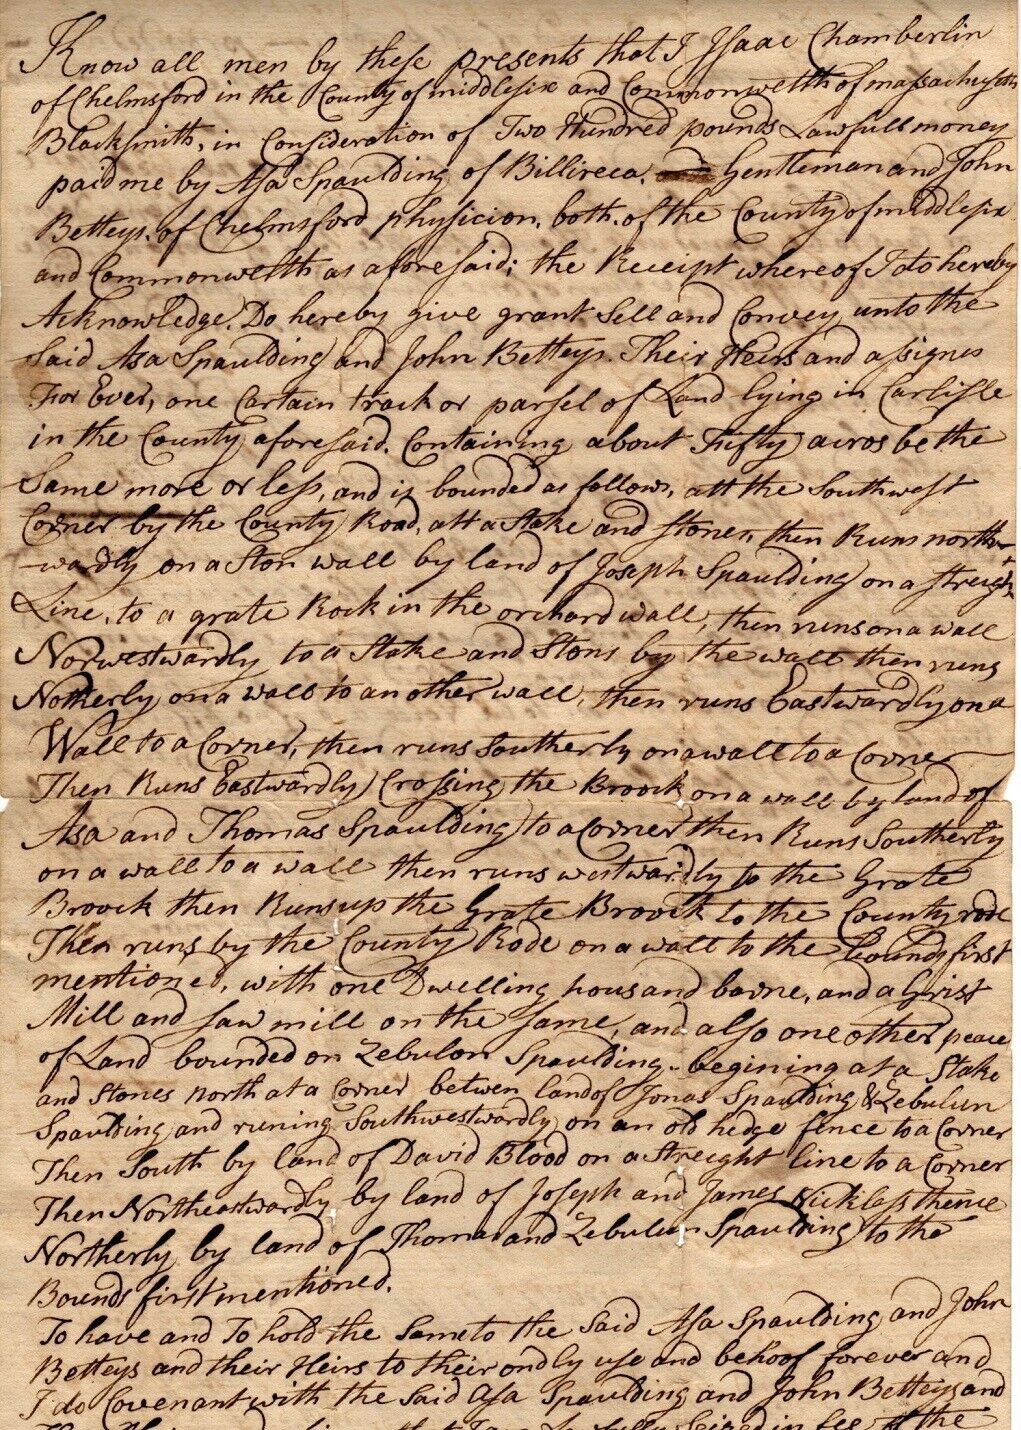 Know all men by these presents that I Isaac Chamberlin
of Chelmsford in the County of middlesix and Commonwelth of massachusetts
Blacksmith, in Consideration of Two Hundred pounds Lawfull money
paid me by Asa Spaulding of Billireca, Gentleman and John
Betteys. of Chelmsford physicion, both. of the County of middlesix
and Commonwelth as aforesaid; the Receipt whereof I do hereby
Acknowledge. Do hereby give grant Sell and Convey unto the
Said Asa Spaulding and John Betteys. Their Heirs and assignes
For Ever, one Cartain track or parsel of Land lying in Carlisle
in the County aforesaid. Containing about Fifty acros be the
Same more or less, and is bounded as follows, att the Southwest
Corner by the County Road, att a Stake and stones, then Runs north-
-wardly on a Ston wall by land of Joseph Spaulding on a streight
Line, to a grate Rock in the orchard wall, then runs on a wall
Norwestwardly to a Stake and Stons by the wall then runs
Notherly on a wall to an other wall, then runs Eastwardly on a
Wall to a Corner, then runs Southerly on a wall to a Corner
Then Runs Eastwardly Crossing the Broock on a wall by land of
Asa and Thomas Spaulding to a Corner then Runs Southerly
on a wall to a wall then runs westwardly to the Grate
Broock then Runs up the Grate Broock to the County rode
Then runs by the County Rode on a wall to the bounds first
mentioned, with one Dwelling hous and barne, and a Grist
Mill and saw mill on the same, and also one other peace
of Land bounded on Zebulon Spaulding - begining at a Stake
and Stones North at a Corner betwen land of Jonas Spaulding & Zebulun
Spaulding and runing Southwestwardly on an old hedge fence to a Corner
Then South by land of David Blood on a Streight line to a Corner
Then Northeastwardly by land of Joseph and James Nickless thence
Northerly by land of Thomas and Zebulun Spaulding to the
Bounds first mentioned.
To have and To hold the Same to the Said Asa Spaulding and John
Betteys and their Heirs to their ondly use and behoof forever and
I do Covenant with the Said Asa Spaulding and John Betteys and
that I am Lawfully Seized in fee of the